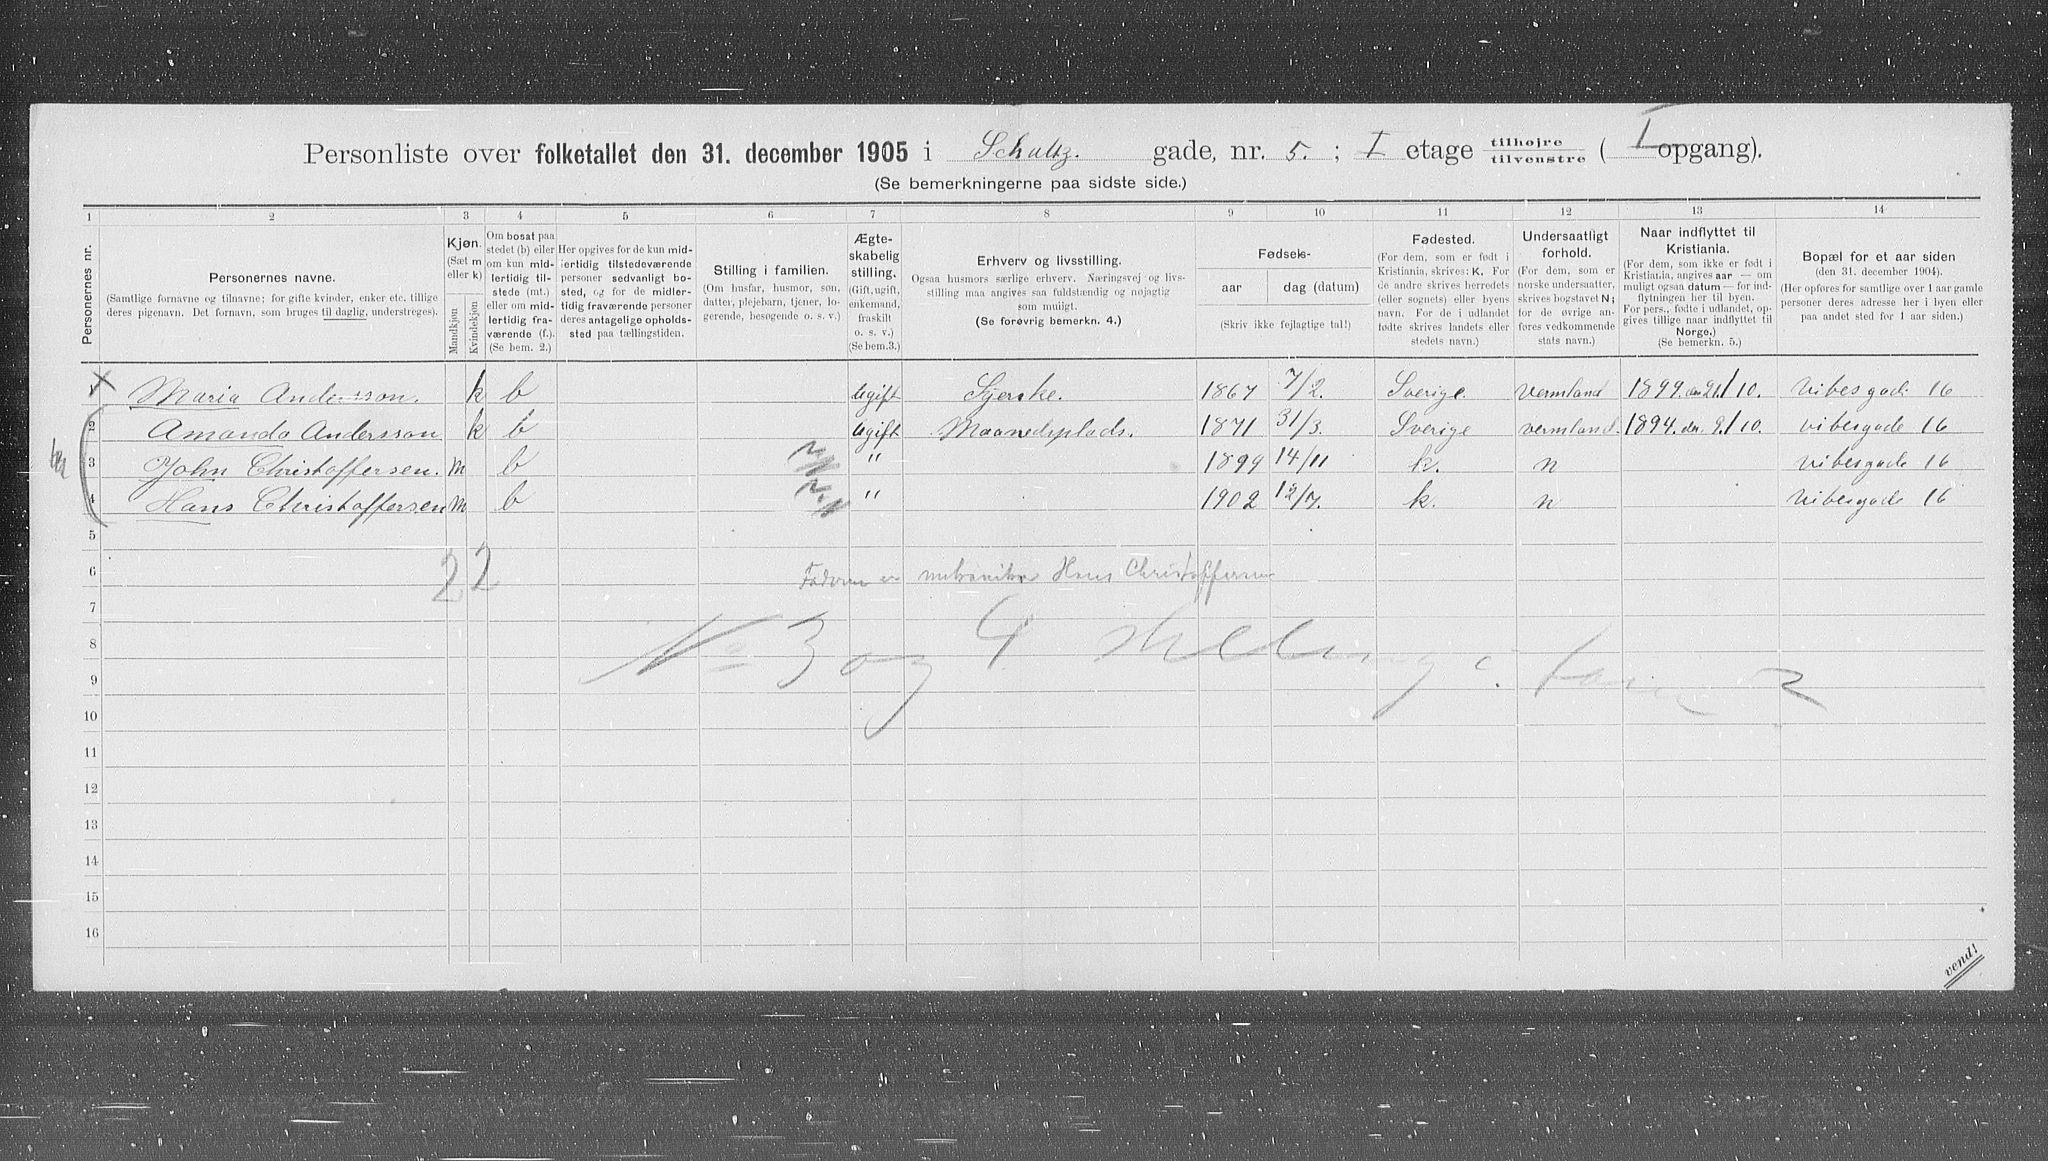 Personliste over folketallet den 31. december 1905 i Schultz. gade, nr. 5. ; I etage tilhøjre tilvenstre ( I opgang).
(Se bemerkningerne paa sidste side.)
1 2 3 4 5 6 7 8 9 10 11 12 13 14
Personernes nr.
Personernes navne.
(Samtlige fornavne og tilnavne; for gifte kvinder, enker etc. tillige deres pigenavn. Det fornavn, som bruges til daglig, understreges).
Kjøn.
(Sæt m eller k)
Mandkjøn
Kvindekjøn
Om bosat paa stedet (b) eller om kun midlertidig tilstede (mt.) eller om midlertidig fraværende (f.). (Se bem. 2.)
Her opgives for de kun midlertidig tilstedeværende personer sedvanligt bosted, og for de midlertidig fraværende personer deres antagelige opholdssted paa tællingstiden.
Stilling i familien.
(Om husfar, husmor, søn, datter, plejebarn, tjener, logerende, besøgende o. s. v.)
Ægteskabelig stilling.
(Gift, ugift, enkemand, fraskilt o. s. v.)
(Se bem.3.)
Erhverv og livsstilling.
Ogsaa husmors særlige erhverv. Næringsvej og livsstilling maa angives saa fuldstændig og nøjagtig som muligt.
(Se forøvrig bemerkn. 4.)
Fødsels-
aar
dag (datum)
(Skriv ikke fejlagtige tal!)
Fødested.
(For dem, som er født i Kristiania, skrives: K. For de andre skrives herredets (eller sognets) eller byens navn. For de i udlandet fødte skrives landets eller stedets navn.)
Undersaatligt forhold.
(For dem, som er norske undersaatter, skrives bogstavet N; for de øvrige anføres vedkommende stats navn.)
Naar indflyttet til Kristiania.
(For dem, som ikke er født i Kristiania, angives aar — om muligt ogsaa datum — for indflytningen her til byen. For pers., fødte i udlandet, opgives tillige naar indflyttet til Norge.)
(Se bemerkn. 5.)
Bopæl for et aar siden
(den 31. december 1904).
(Her opføres for samtlige over 1 aar gamle personer deres adresse her i byen eller paa andet sted for 1 aar siden.)
1 Maria Andersson. k b Ugift Syerske. 1867 7/2. Sverige Vermland 1899. 21/10. Vibesgade 16
2 Amanda Andersson k b Ugift Maanedsplads. 1871 31/3. Sverige Vermland. 1894. 2/10. Vibesgade 16
3 John Christoffersen. m b " 1899 14/11 k. n Vibesgade 16
4 Hans Christoffersen m b " 1902 12/7. k. n Vibesgade 16
5
6 2 2 Faderen er mekaniker Hans Christoffersen
7
8 No 3 og 4
9
10
11
12
13
14
15
16
vend!